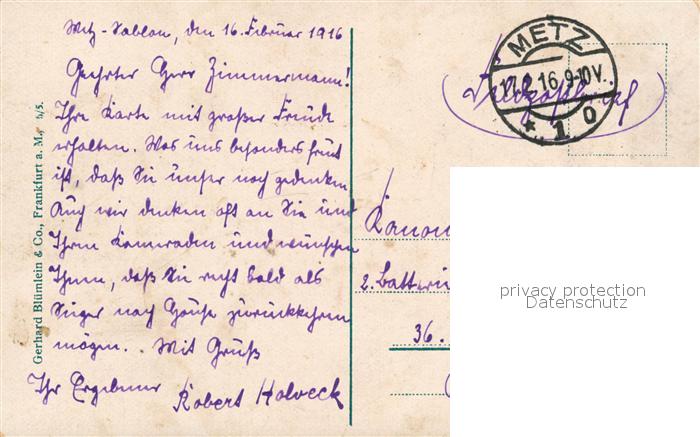 Metz-Sablon, den 16. Februar 1916
Geehrter Herr Zimmermann!
Ihre Karte mit großer Freude
erhalten. Was uns besonders freut
ist, daß Sie unser noch gedenken
Auch wir denken oft an Sie und
Ihren Kameraden und wünschen
Ihnen, daß Sie recht bald als
Sieger nach Hause zurückkehren
mögen. Mit Gruß
Ihr Ergebener Robert Holveck
Gerhard Blümlein & Co., Frankfurt a. M., 4/5.
METZ
17.2.16. 9-10V.
* 1 o
Feldpostbrief
Kanon
2. Batterie
36.
privacy protection
Datenschutz